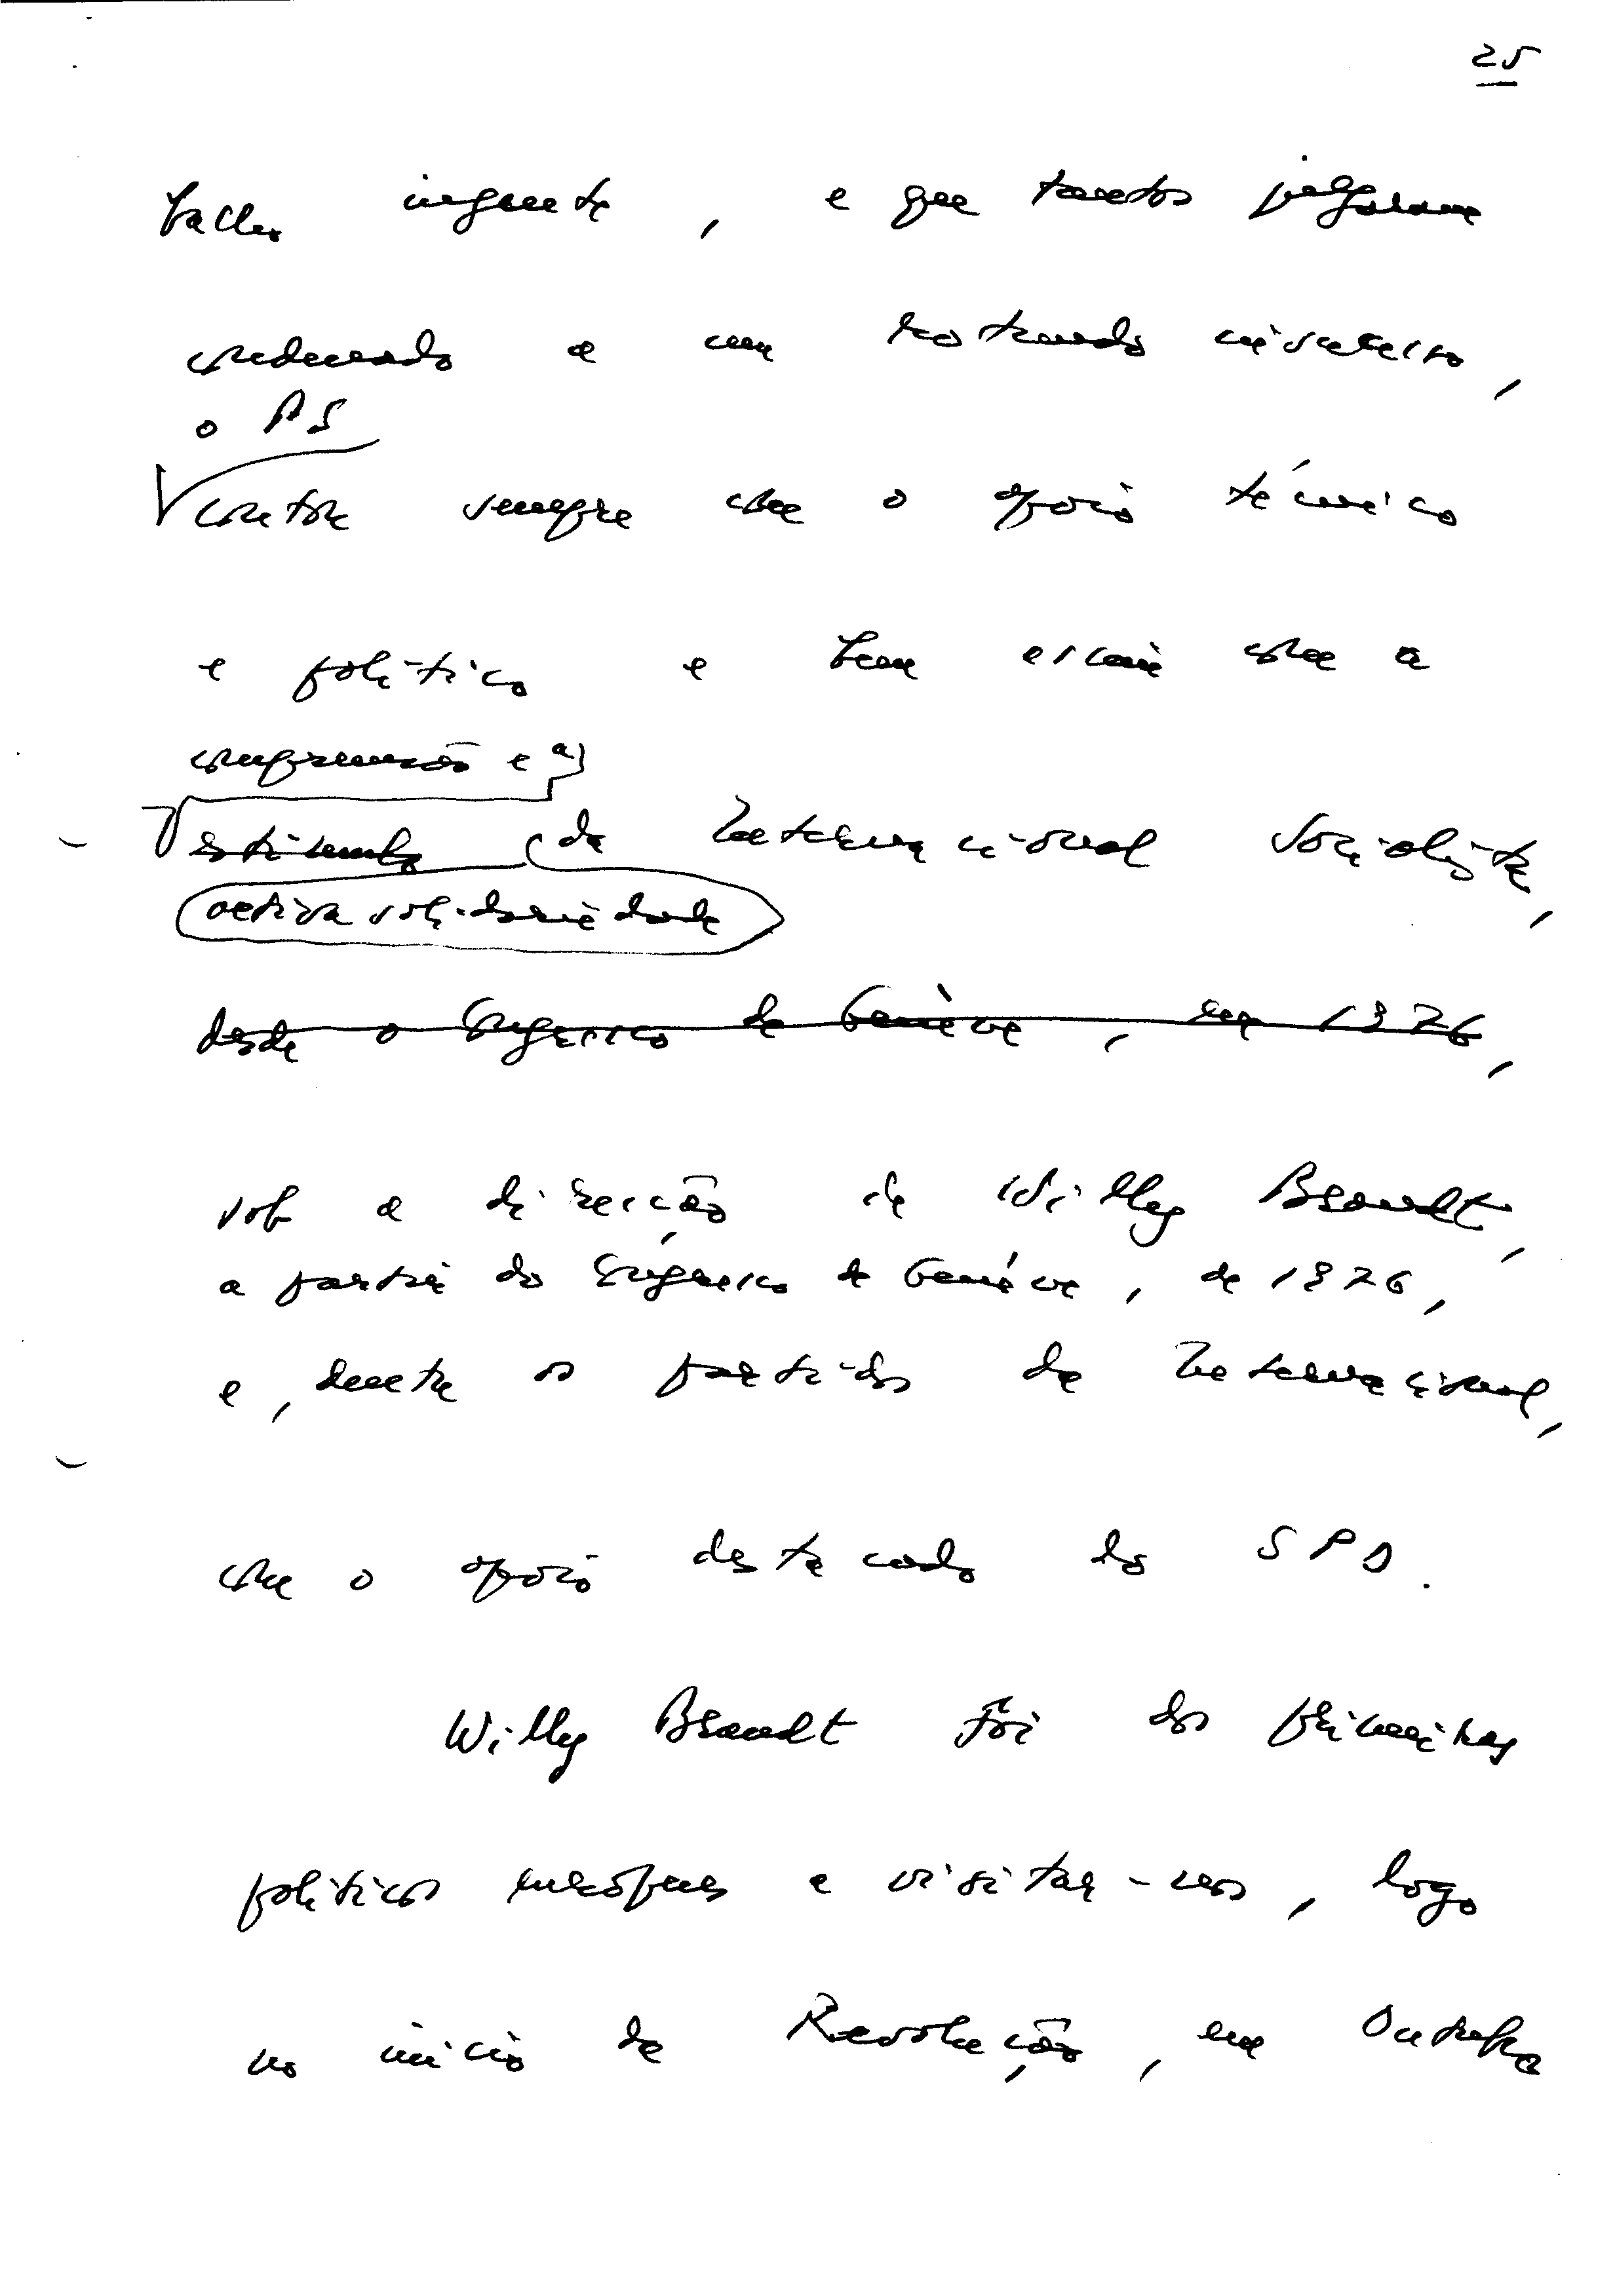 25
, e que tantos julgavam
condenado a um rotundo insucesso,
o PS
contou sempre com o apoio técnico
e político e bem assim com a
compreensão e a
estímulo da Internacional Socialista,
activa solidariedade
desde o Congresso de Genève, em 1976,
sob a direcção de Willy Brandt,
a partir do Congresso de Genève, de 1976,
e, dentre os partidos da Internacional,
com o apoio destacado do SPD.
Willy Brandt foi dos primeiros
políticos europeus a visitar-nos, logo
no início da Revolução, em Outubro